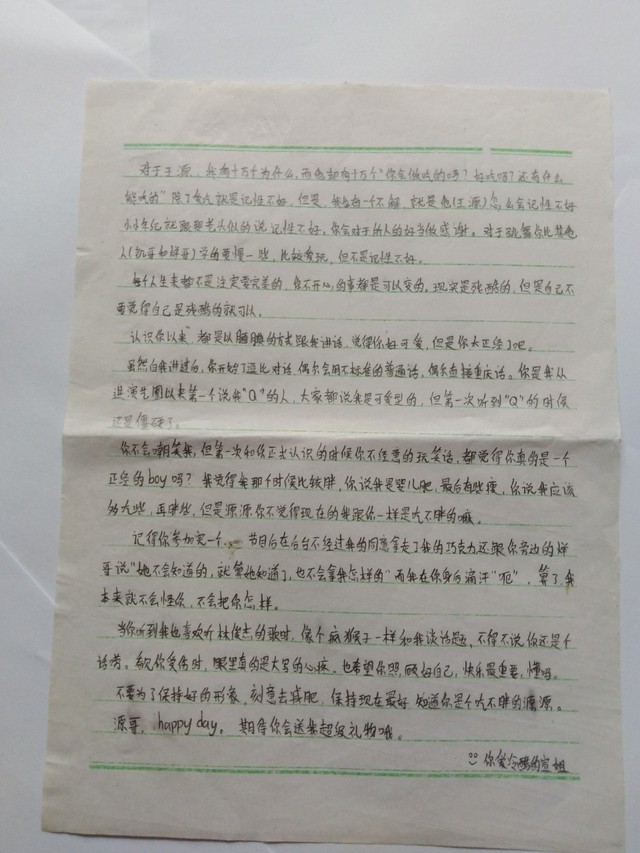 对于王源,我有十万个为什么,而他却有十万个"你会做吃的吗?好吃吗?还有什么
能吃的"除了贪吃就是记性不好,但是,我也有一个不解,就是他(王源)怎么会记性不好
小小年纪就跟老头似的说记性不好。你会对于别人的好当做感谢。对于跳舞你比其他
人(凯哥和样哥)学的要慢一些,比较贪玩,但不是记性不好。
每个人生来都不是注定要完美的,你不开心的事都是可以变的,现实是残酷的,但是自己不
要觉得自己是残酷的就可以。
认识你以来,都是以腼腆的方式跟我讲话,觉得你好可爱,但是你太正经了吧。
虽然自我讲过后,你开始了逗比对话,偶尔会用不标准的普通话,偶尔直接重庆话。你是我从
进演艺圈以来第一个说我"Q"的人,大家都说我是可爱型的,但第一次听到"Q"的时候
还是僵硬了。
你不会嘲笑我,但第一次和你正式认识的时候你不经意的玩笑话,都觉得你真的是一个
正经的boy吗?我觉得我那个时候比较胖,你说我是婴儿肥,最后有些瘦,你说我应该
多吃些,再胖些,但是源源你不觉得现在的我跟你一样是吃不胖的嘛。
记得你参加完一个 节目后在后台不经过我的同意拿走了我的巧克力还跟你旁边的样
哥说"她不会知道的,就算她知道了,也不会拿我怎样的"而我在你身后滴汗"呃",算了,我
本来就不会怪你,不会把你怎样。
当你听到我也喜欢听林俊杰的歌时,像个疯猴子一样和我谈话题,不得不说你还是个
话唠。知你受伤时,眼里真的是大写的心疼,也希望你照顾好自己,快乐最重要,懂吗。
不要为了保持好的形象,刻意去减肥,保持现在最好,知道你是个吃不胖的源源。
源哥,happy day。期待你会送我超级礼物哦。
你爱冷酷的宣姐